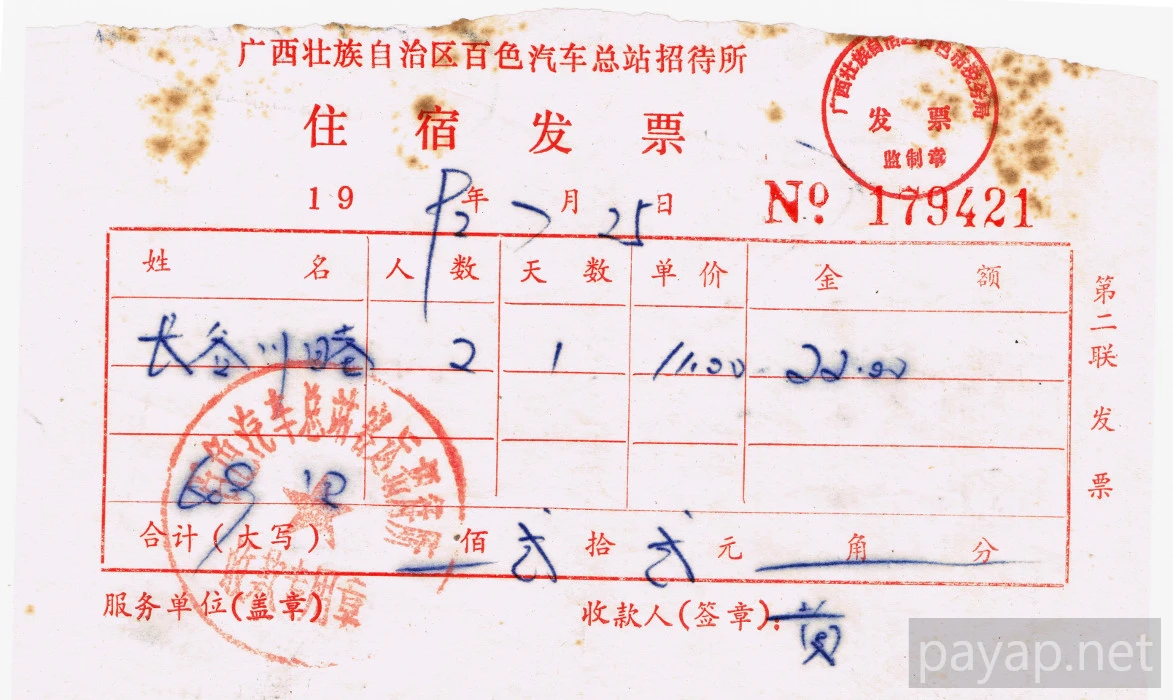 广西壮族自治区百色汽车总站招待所
住宿发票
广西壮族自治区百色市税务局
发票
监制章
1992年7月25日
№ 179421
姓名 人数 天数 单价 金额
长谷川 2 1 11.00 22.00
第二联 发票
合计(大写) 佰 弍拾 弍元 角 分
汽车总站
服务单位(盖章) 收款人(签章):
payap.net